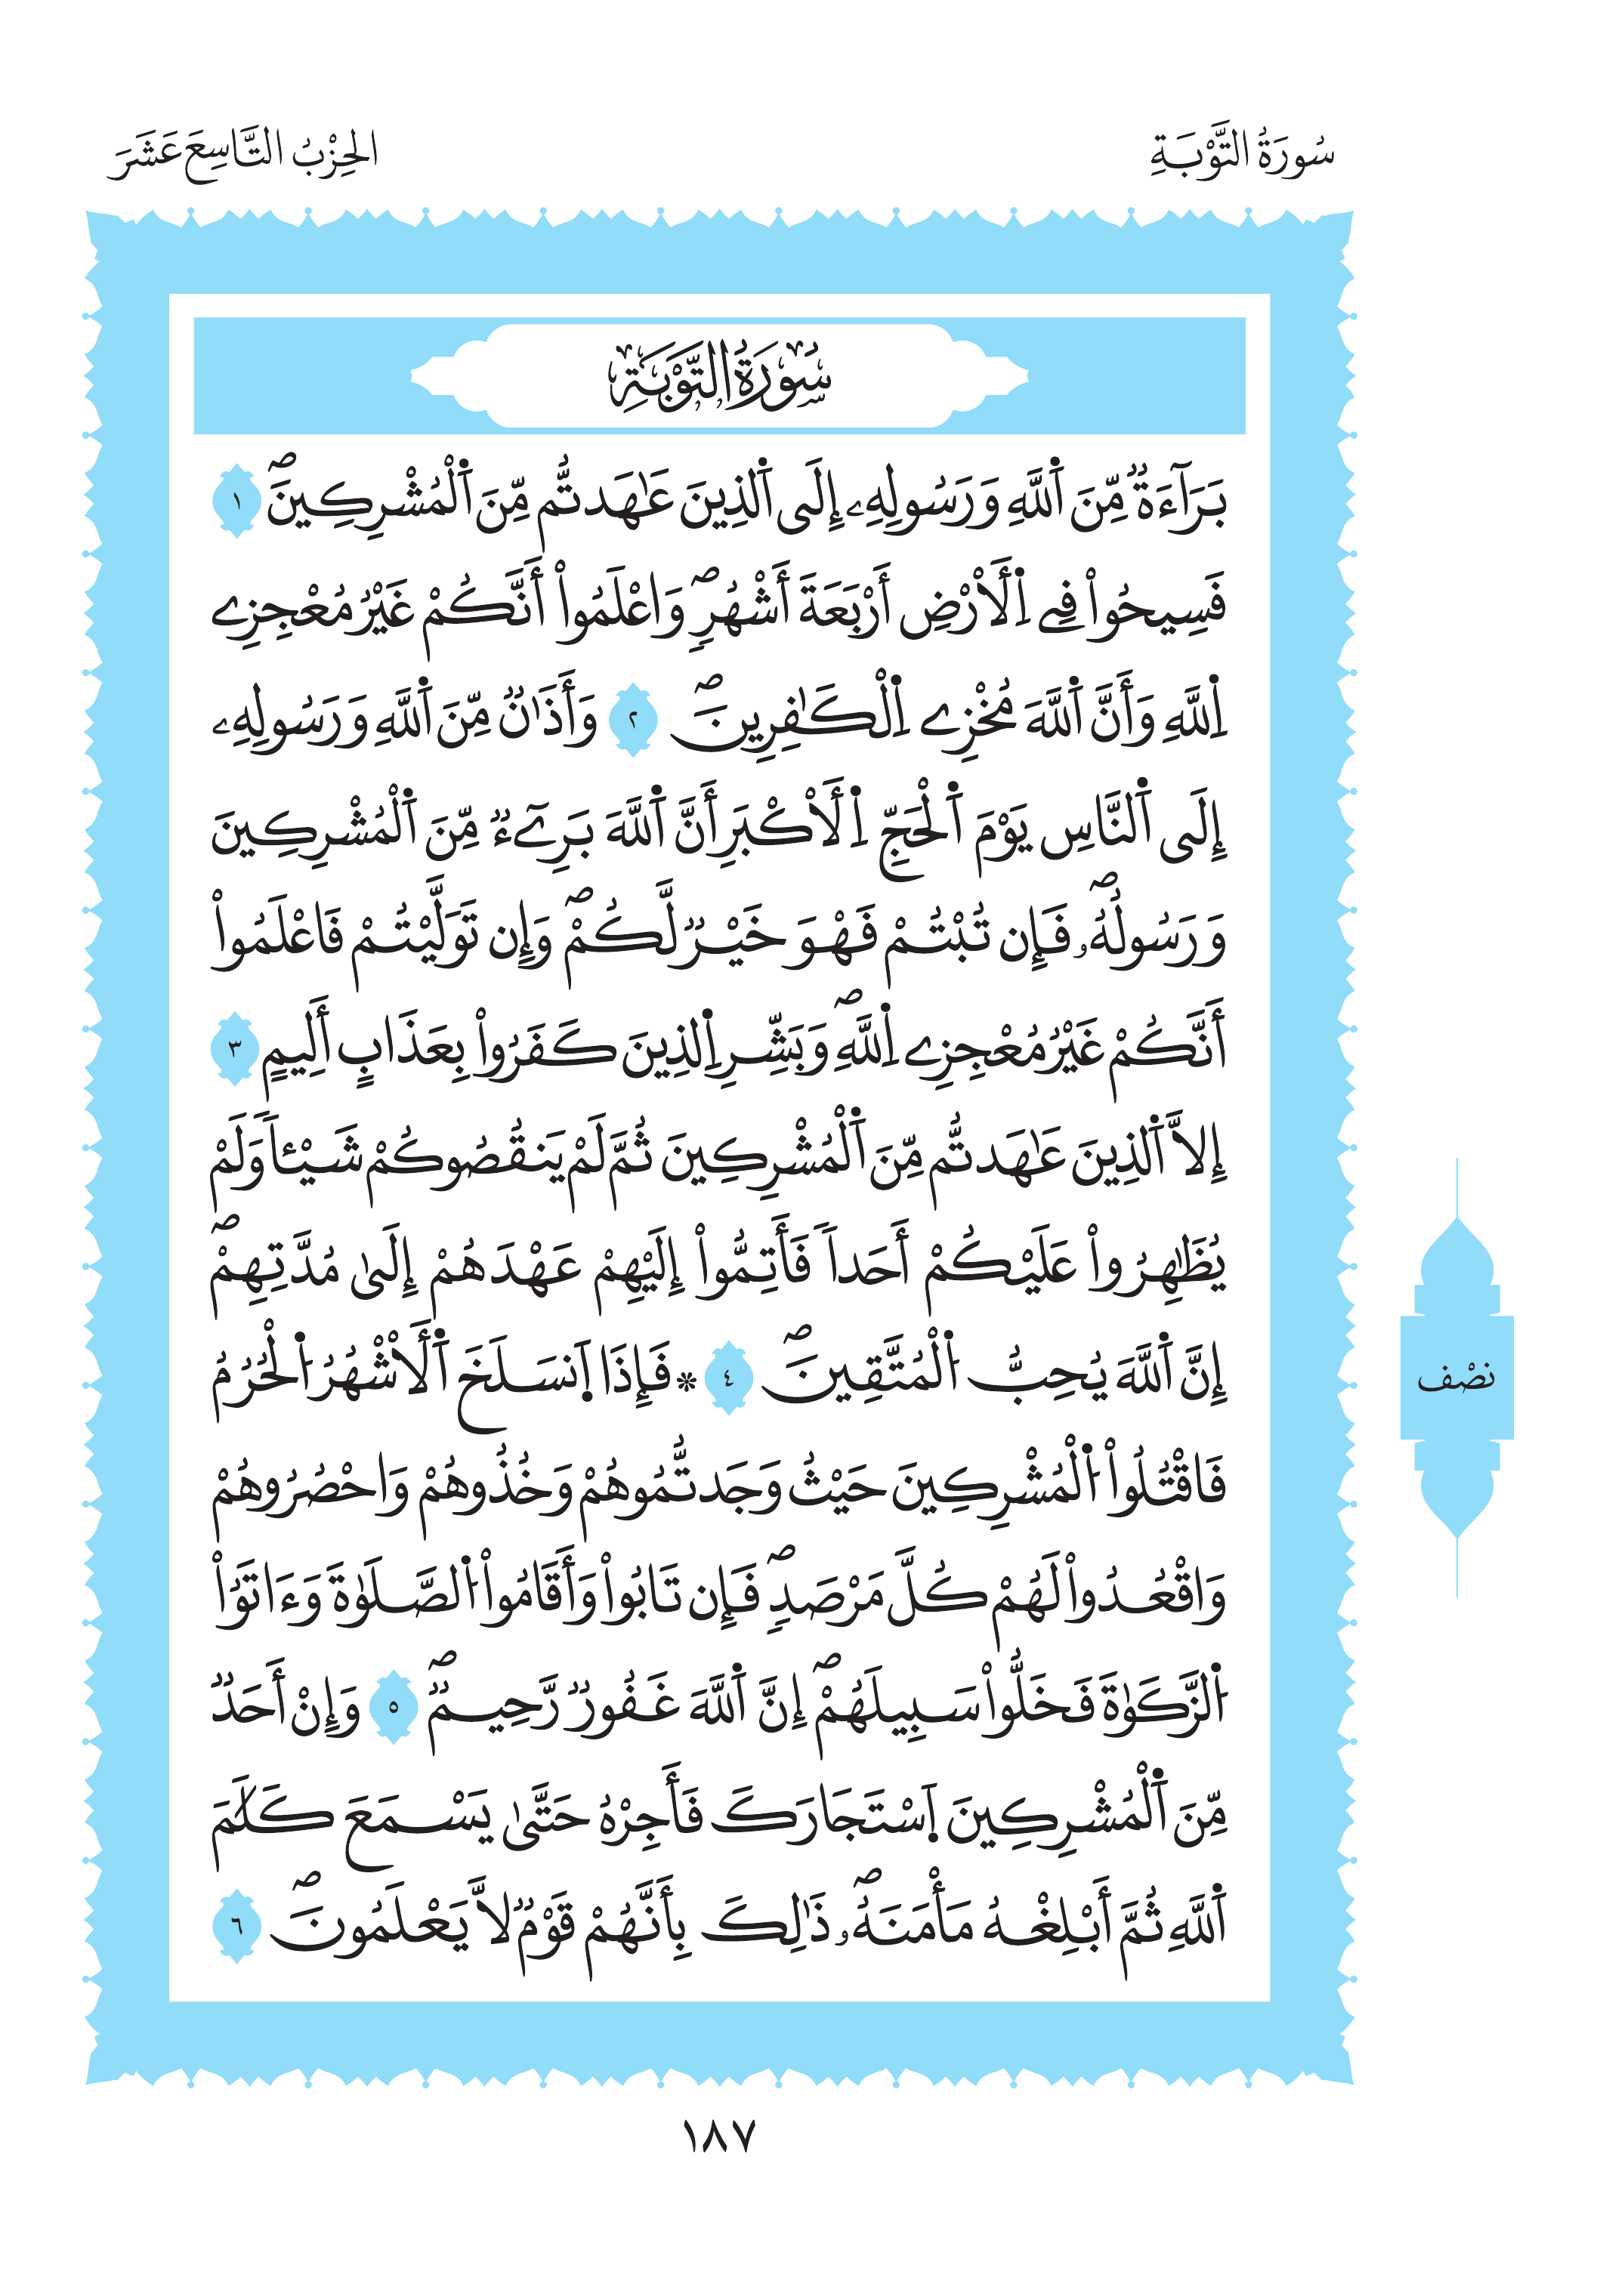 سُورَةُ التَّوْبَةِ
الحِزْبُ التَّاسِعَ عَشَرَ
سُورَةُ التَّوْبَةِ
بَرَآءَةٌ مِّنَ اَ۬للَّهِ وَرَسُولِهِۦٓ إِلَى اَ۬لذِينَ عَٰهَدتُّم مِّنَ اَ۬لْمُشْرِكِينَۖ ١
فَسِيحُواْ فِے اِ۬لَارْضِ أَرْبَعَةَ أَشْهُرٖۖ وَاعْلَمُواْ أَنَّكُمْ غَيْرُ مُعْجِزِے
اِ۬للَّهِ وَأَنَّ اَ۬للَّهَ مُخْزِے اِ۬لْكَٰفِرِينَۖ ٢ وَأَذَٰنٌ مِّنَ اَ۬للَّهِ وَرَسُولِهِۦٓ
إِلَى اَ۬لنَّاسِ يَوْمَ اَ۬لْحَجِّ اِ۬لَاكْبَرِ أَنَّ اَ۬للَّهَ بَرِےٓءٌ مِّنَ اَ۬لْمُشْرِكِينَ
وَرَسُولُهُۥۖ فَإِن تُبْتُمْ فَهْوَ خَيْرٌ لَّكُمْۖ وَإِن تَوَلَّيْتُمْ فَاعْلَمُواْ
أَنَّكُمْ غَيْرُ مُعْجِزِے اِ۬للَّهِۖ وَبَشِّرِ اِ۬لذِينَ كَفَرُواْ بِعَذَابٍ أَلِيمٍ ٣
إِلاَّ اَ۬لذِينَ عَٰهَدتُّم مِّنَ اَ۬لْمُشْرِكِينَ ثُمَّ لَمْ يَنقُصُوكُمْ شَيْـٔاً وَلَمْ
يُظَٰهِرُواْ عَلَيْكُمْ أَحَداً فَأَتِمُّواْ إِلَيْهِمْ عَهْدَهُمْ إِلَىٰ مُدَّتِهِمْۖ
إِنَّ اَ۬للَّهَ يُحِبُّ اُ۬لْمُتَّقِينَۖ ٤ * فَإِذَا اَ۪نسَلَخَ اَ۬لَاشْهُرُ اُ۬لْحُرُمُ
فَاقْتُلُواْ اُ۬لْمُشْرِكِينَ حَيْثُ وَجَدتُّمُوهُمْ وَخُذُوهُمْ وَاحْصُرُوهُمْ
وَاقْعُدُواْ لَهُمْ كُلَّ مَرْصَدٖۖ فَإِن تَابُواْ وَأَقَامُواْ اُ۬لصَّلَوٰةَ وَءَاتَوُاْ
اُ۬لزَّكَوٰةَ فَخَلُّواْ سَبِيلَهُمْۖ إِنَّ اَ۬للَّهَ غَفُورٌ رَّحِيمٌۖ ٥ وَإِنْ أَحَدٌ
مِّنَ اَ۬لْمُشْرِكِينَ اَ۪سْتَجَارَكَ فَأَجِرْهُ حَتَّىٰ يَسْمَعَ كَلَٰمَ
اَ۬للَّهِ ثُمَّ أَبْلِغْهُ مَأْمَنَهُۥۖ ذَٰلِكَ بِأَنَّهُمْ قَوْمٌ لاَّ يَعْلَمُونَۖ ٦
نصْف
١٨٧